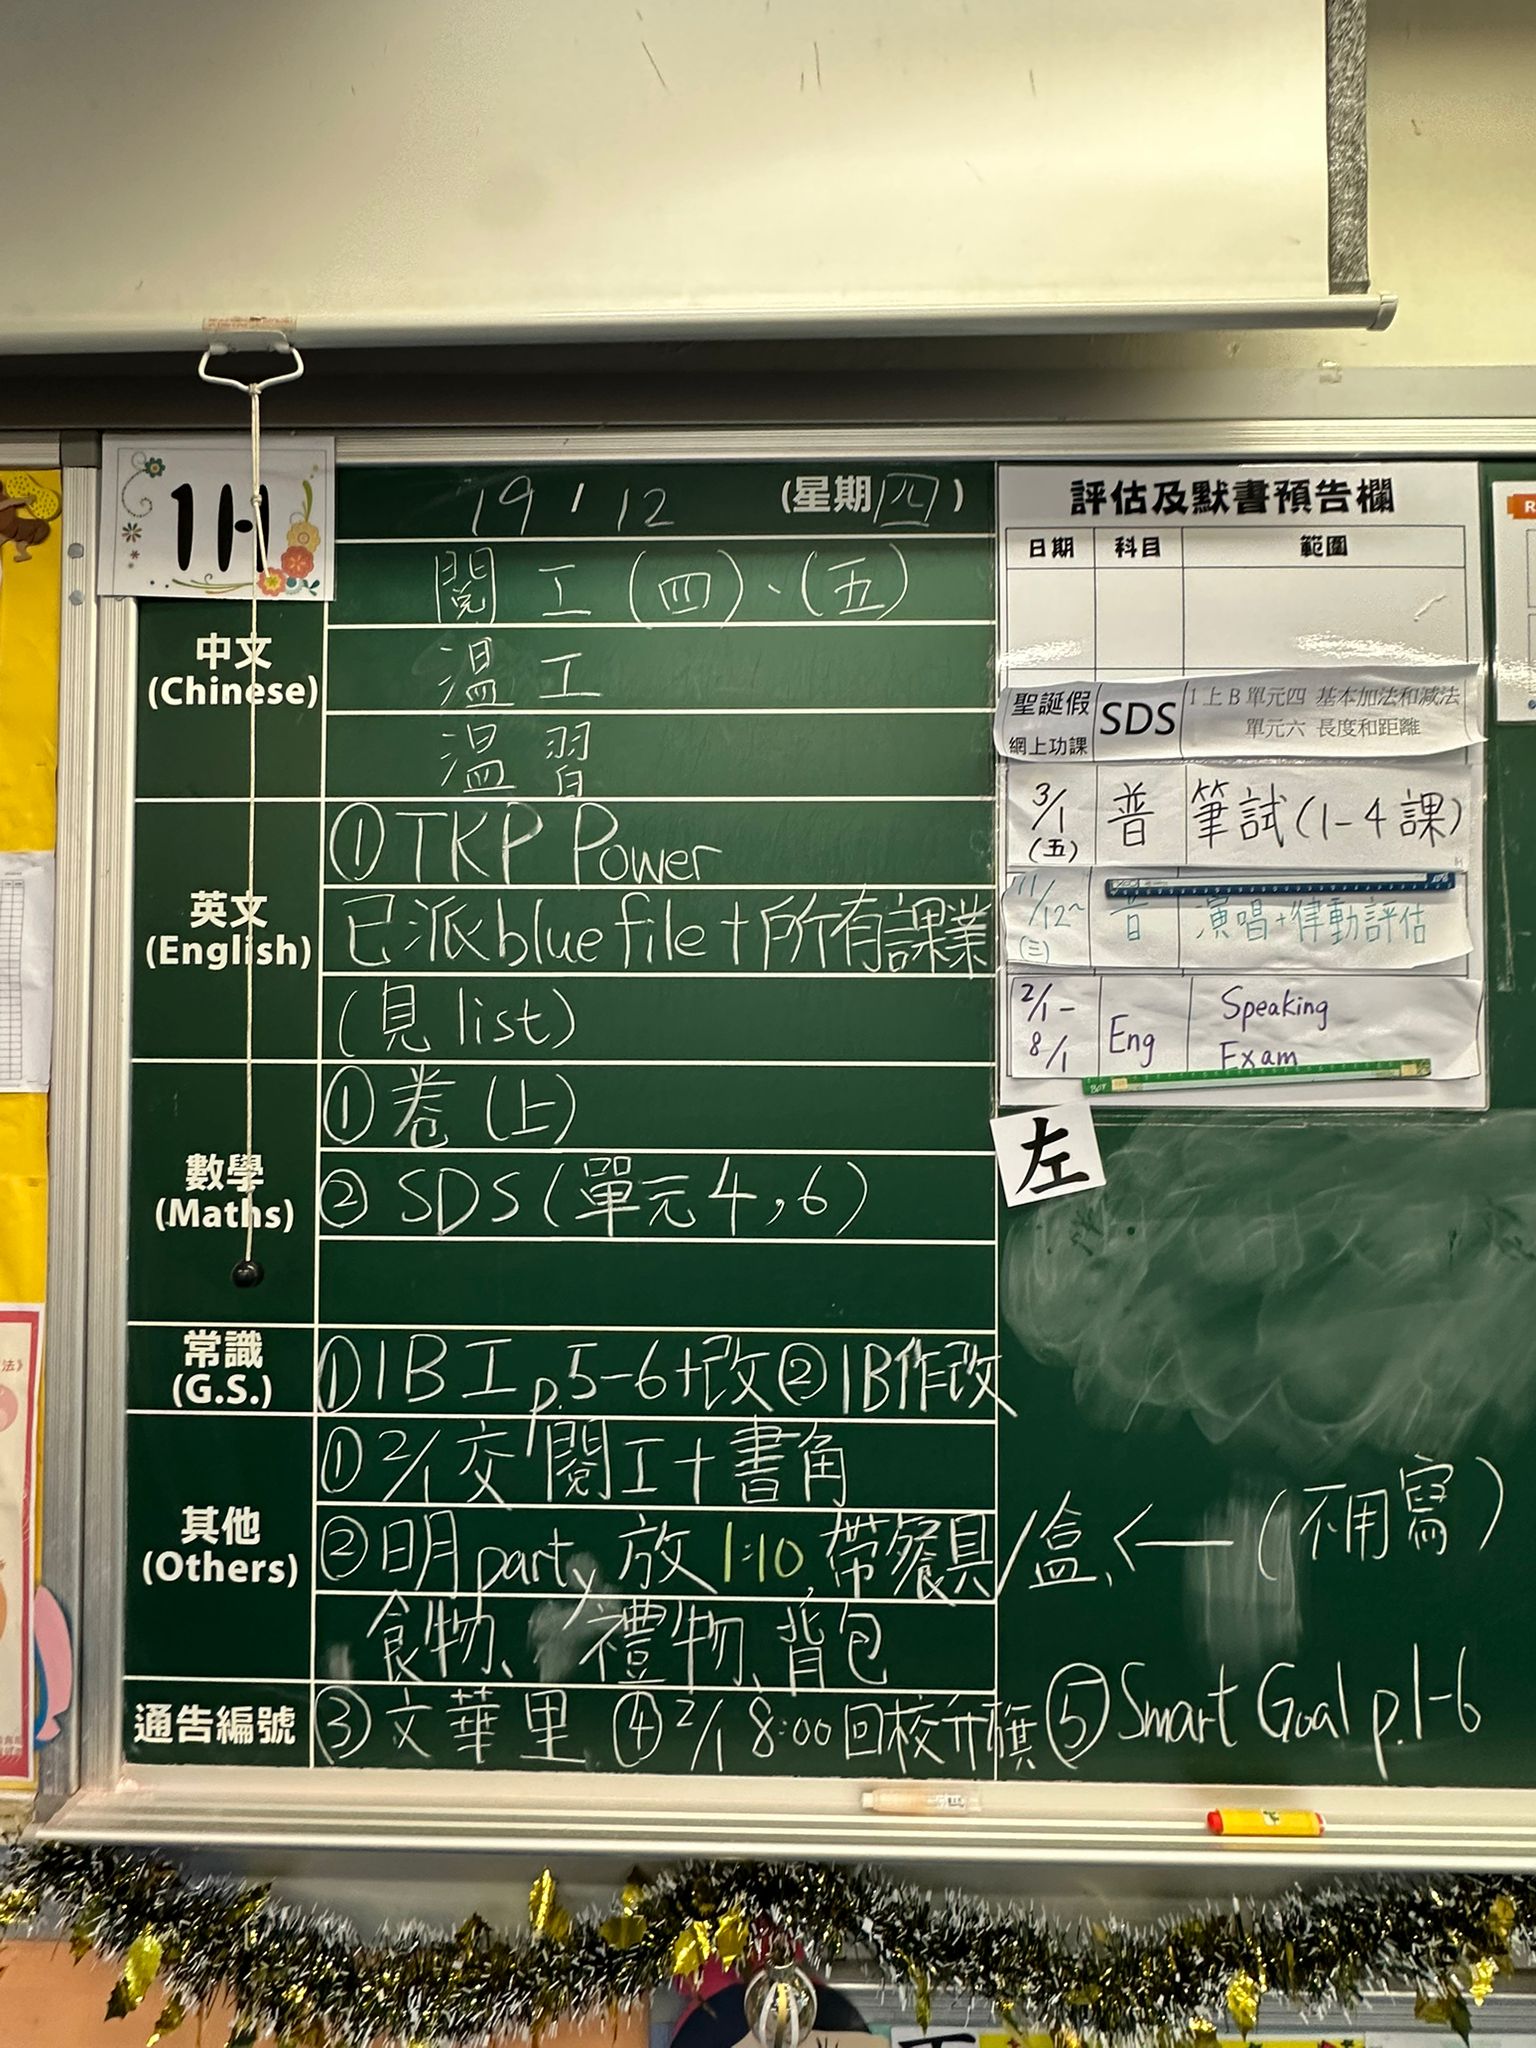 1H
19 / 12 (星期四)
中文
(Chinese)
閱工(四)、(五)
溫工
溫習
英文
(English)
①TKP Power
已派blue file+所有課業
(見 list)
數學
(Maths)
①卷(上)
②SDS(單元4,6)
常識
(G.S.)
①1B工p.5-6+改②1B作改
其他
(Others)
①2/1交閱工+書角
②明party放1:10,帶餐具/盒、←(不用寫)
食物、禮物、背包
通告編號
③文華里 ④2/1 8:00回校升旗⑤Smart Goal p.1-6
評估及默書預告欄
日期 科目 範圍
聖誕假 SDS 1上B單元四 基本加法和減法
網上功課 單元六 長度和距離
3/1 普 筆試(1-4課)
(五)
11/12~ 音 演唱+律動評估
(三)
2/1- Eng Speaking
8/1 Exam
左